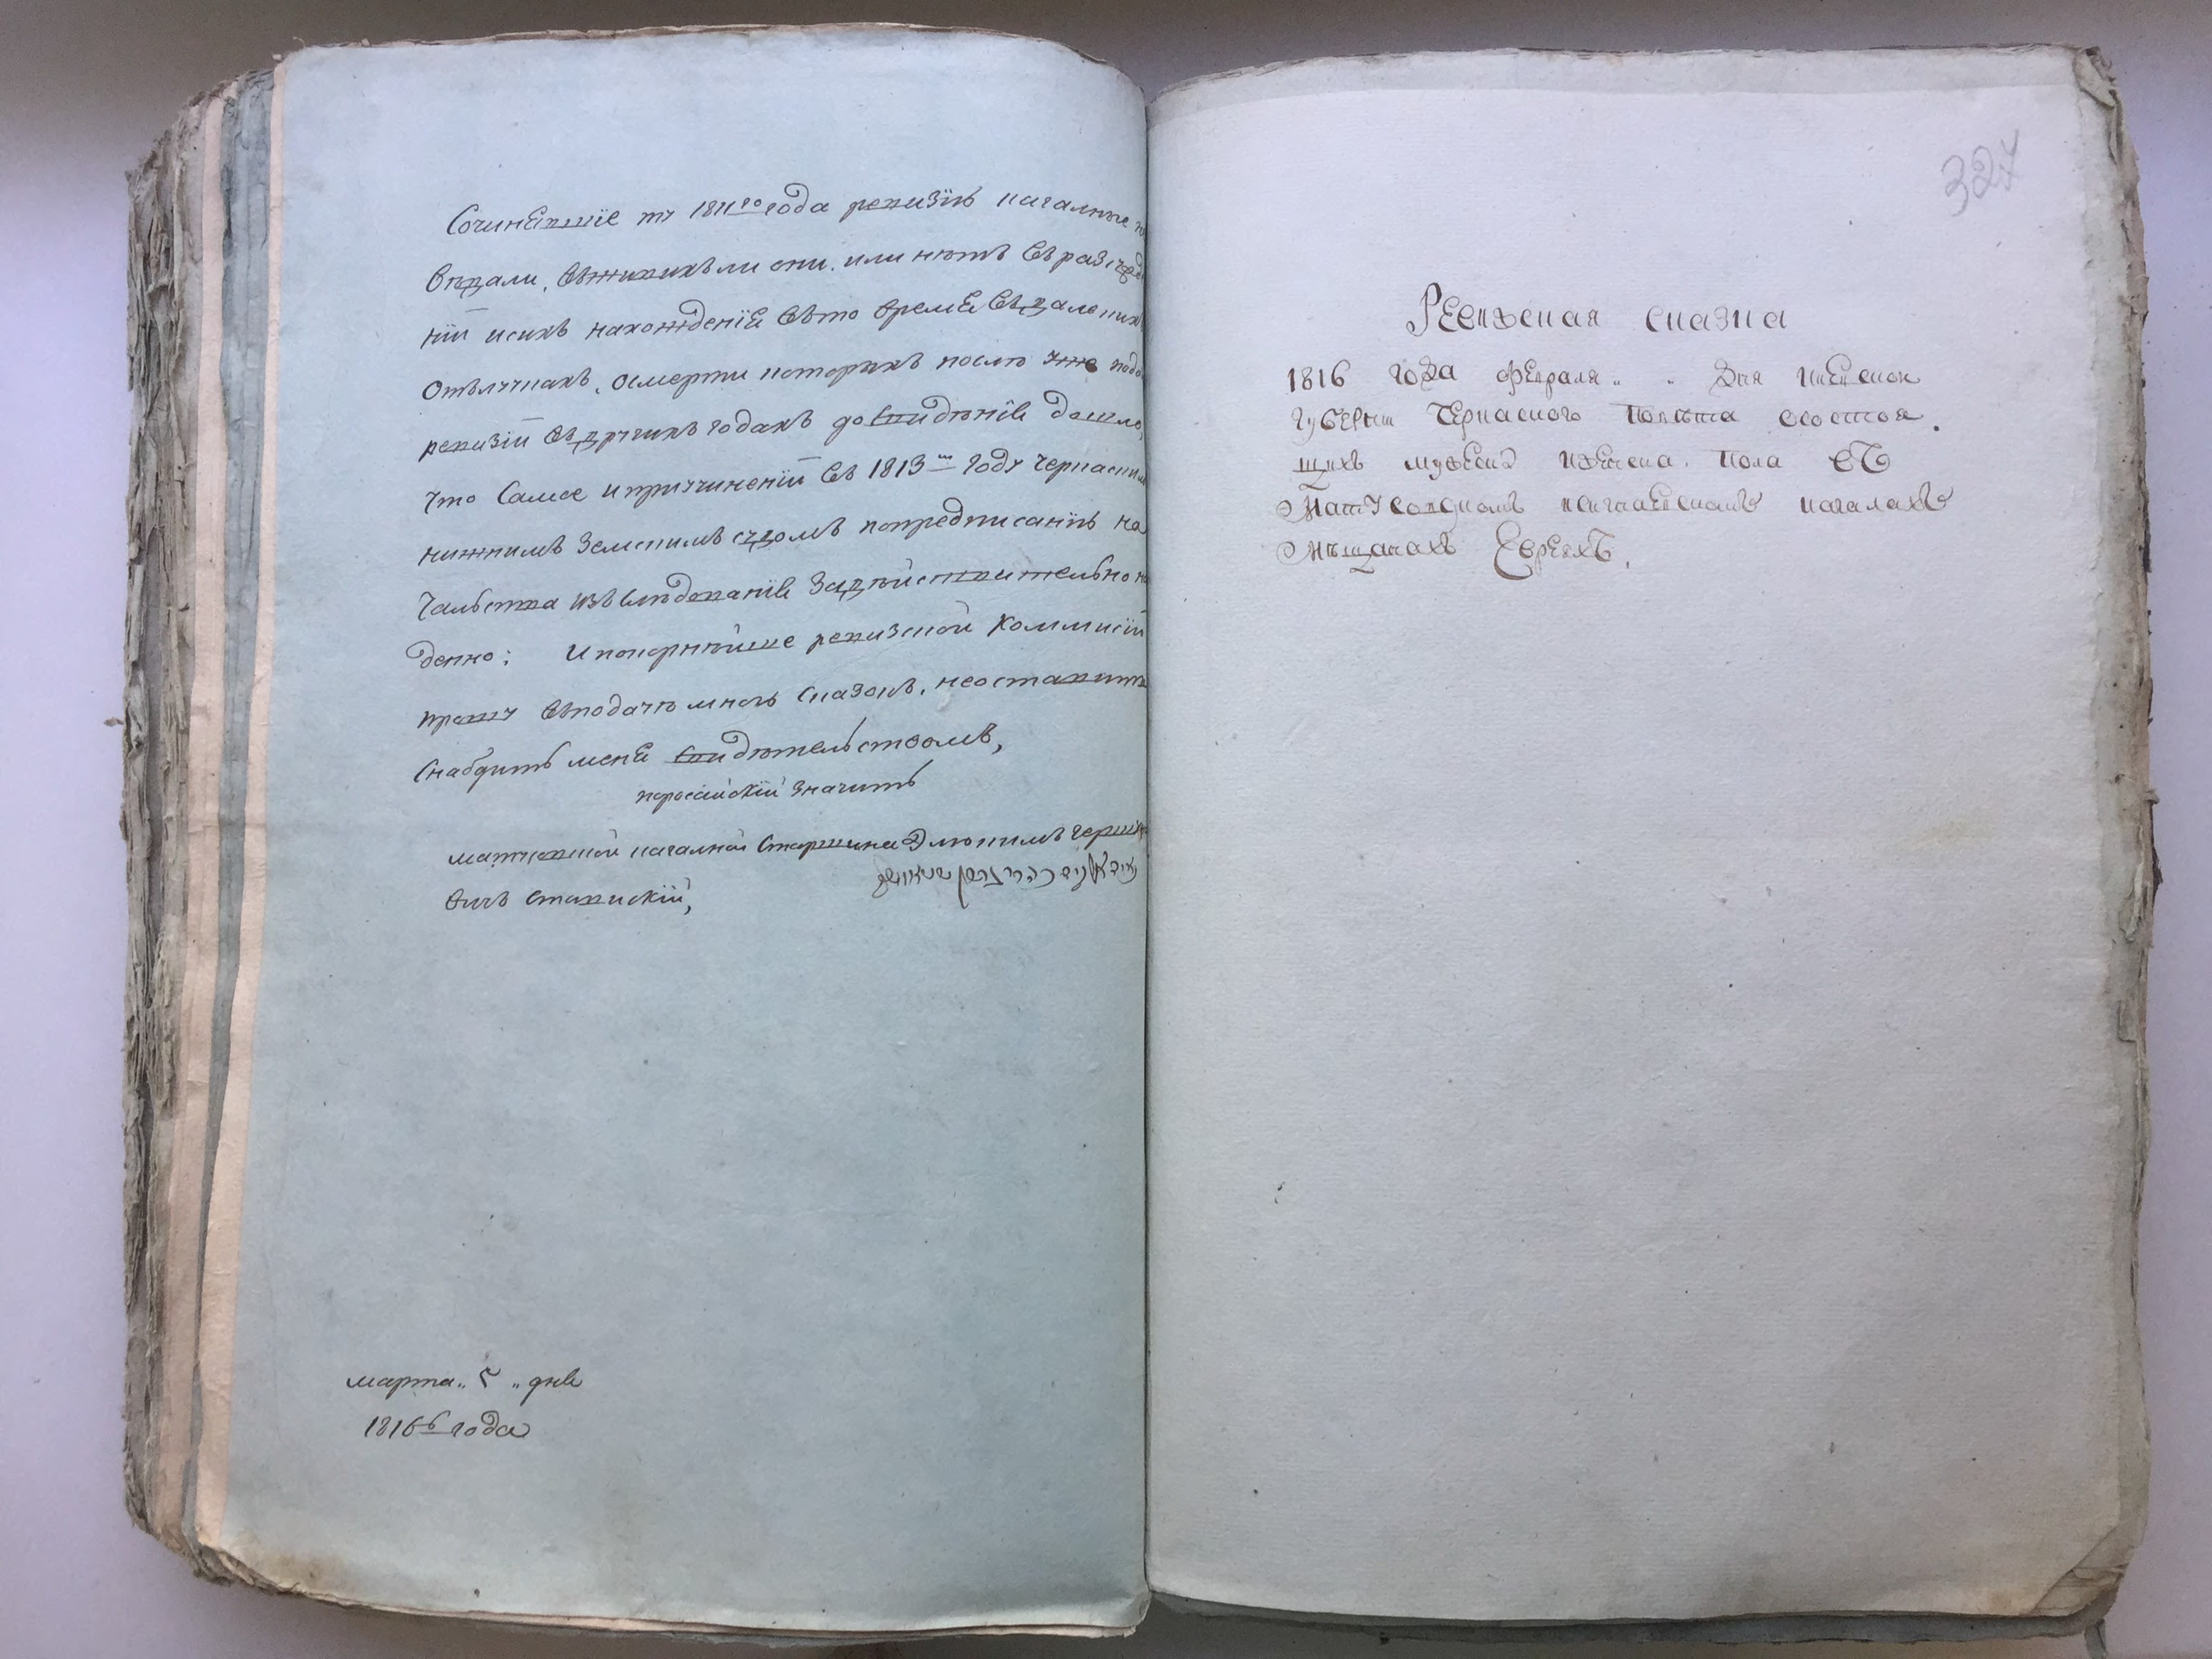 Сочинѣвшіе въ 1811го года ревизіи кагалные
видали, въживихъ ли они, или нѣтъ въ
ніи исихъ нахожденіе въто время въдалекихъ
отлучкахъ, осмерти которихъ послѣ уже
ревизіи въдругихъ годахъ до свидѣнія дошло,
что самое ипричиненіи въ 1813м году черкаскимъ
нижнимъ земскимъ судомъ попредписанію на
чальства изслѣдованіе задѣйствительно
денно; Ипокорнѣйше ревизской коммисіи
прошу въподачѣ мною сказокъ, неоставить
снабдить мене свидѣтельствомъ,
поросійскій значить
матусовской кагалной старшина Элюкимъ
вичъ ставискій,
марта „5„ дня
1816го года
327
Ревижская сказка
1816 года февраля „ „ дня Кіевской
губерніи Черкаского повѣта состоя
щихъ мужеска ижѣнска пола въ
Матусовскомъ колчаевскомъ кагалахъ
Мѣщанахъ Евреяхъ.